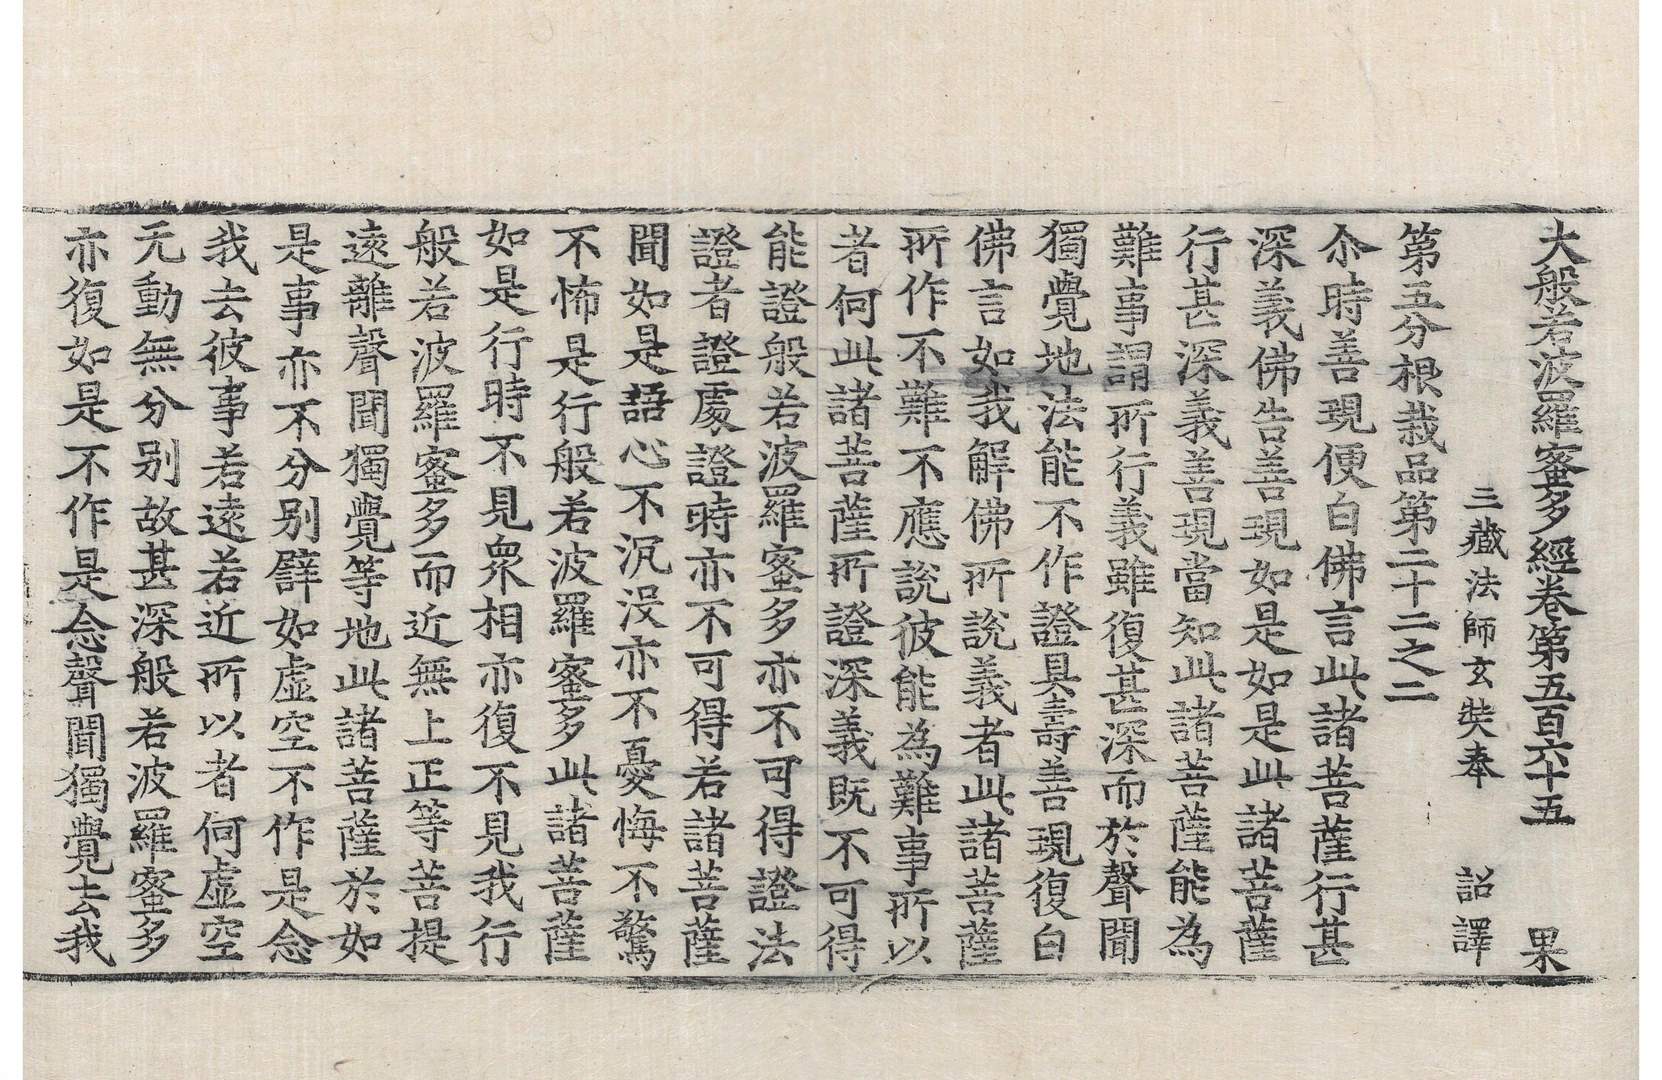 大般若波羅蜜多經卷第五百六十五 果
三藏法師玄奘奉 詔譯
第五分根栽品第二十二之二
尒時善現便白佛言此諸菩薩行甚
深義佛告善現如是如是此諸菩薩
行甚深義善現當知此諸菩薩能為
難事謂所行義雖復甚深而於聲聞
獨覺地法能不作證具壽善現復白
佛言如我解佛所說義者此諸菩薩
所作不難不應說彼能為難事所以
者何此諸菩薩所證深義既不可得
能證般若波羅蜜多亦不可得證法
證者證處證時亦不可得若諸菩薩
聞如是語心不沉沒亦不憂悔不驚
不怖是行般若波羅蜜多此諸菩薩
如是行時不見衆相亦復不見我行
般若波羅蜜多而近無上正等菩提
遠離聲聞獨覺等地此諸菩薩於如
是事亦不分別譬如虛空不作是念
我去彼事若遠若近所以者何虛空
无動無分別故甚深般若波羅蜜多
亦復如是不作是念聲聞獨覺去我